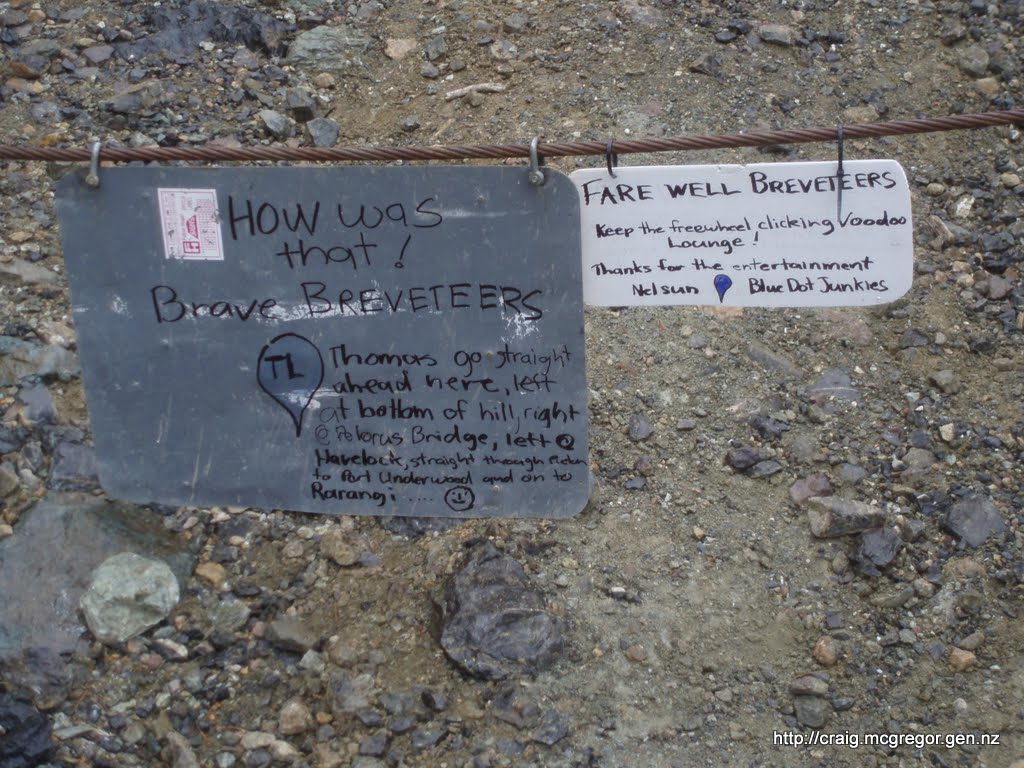 HOW was
that!
Brave BREVETEERS
TL
Thomas go straight
ahead here, left
at bottom of hill, right
@ Pelorus Bridge, left @
Havelock, straight through Picton
to Port Underwood and on to
Rarangi.....
FARE WELL BREVETEERS
Keep the freewheel clicking Voodoo
Lounge!
Thanks for the entertainment
Nelsun Blue Dot Junkies
http://craig.mcgregor.gen.nz